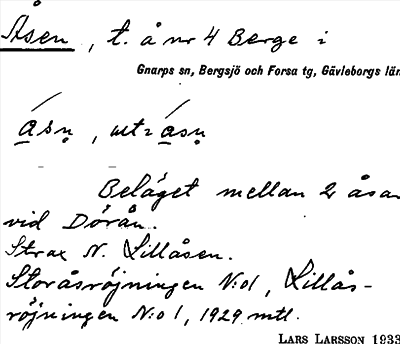 Åsen, t. å nr 4 Berge i
Gnarps sn, Bergsjö och Forsa tg, Gävleborgs län
ásṇ, ut i ásṇ
Beläget mellan 2 åsar
vid Dörån.
Strax N. Lillåsen.
Storåsröjningen N:o1, Lillås-
röjningen N:o 1, 1929 mtl.
LARS LARSSON 1933